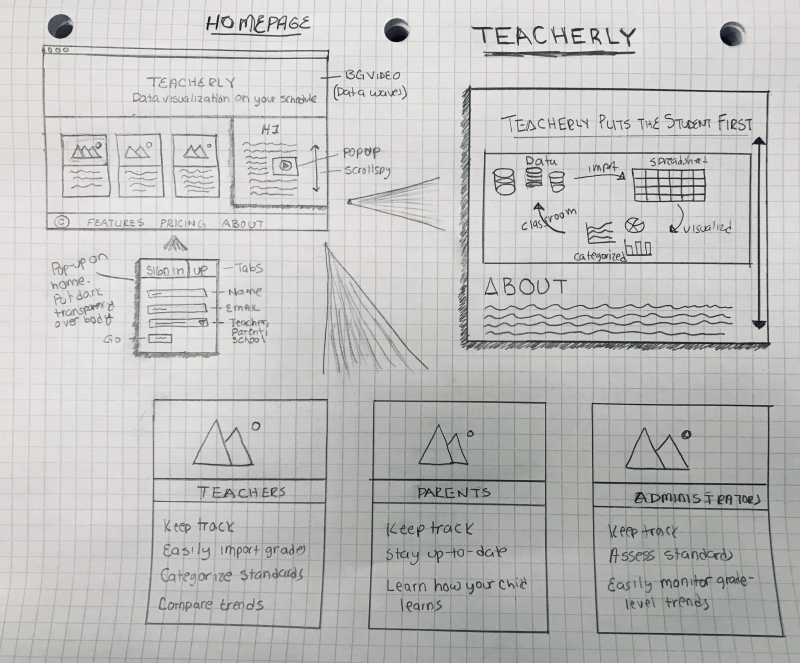 HOMEPAGE
TEACHERLY
TEACHERLY
Data visualization on your schedule
BG VIDEO
(Data waves)
H1
POPUP
scrollspy
© FEATURES PRICING ABOUT
Pop-up on
home.
Put dark
transparency
over body
SIGN IN UP
Tabs
Name
EMAIL
Teacher,
Parent,
School
Go
TEACHERLY PUTS THE STUDENT FIRST
Data
import
spreadsheet
classroom
visualized
categorized
ABOUT
TEACHERS
Keep track
Easily import grades
Categorize standards
Compare trends
PARENTS
Keep track
Stay up-to-date
Learn how your child
learns
ADMINISTRATORS
Keep track
Assess standards
Easily monitor grade-
level trends